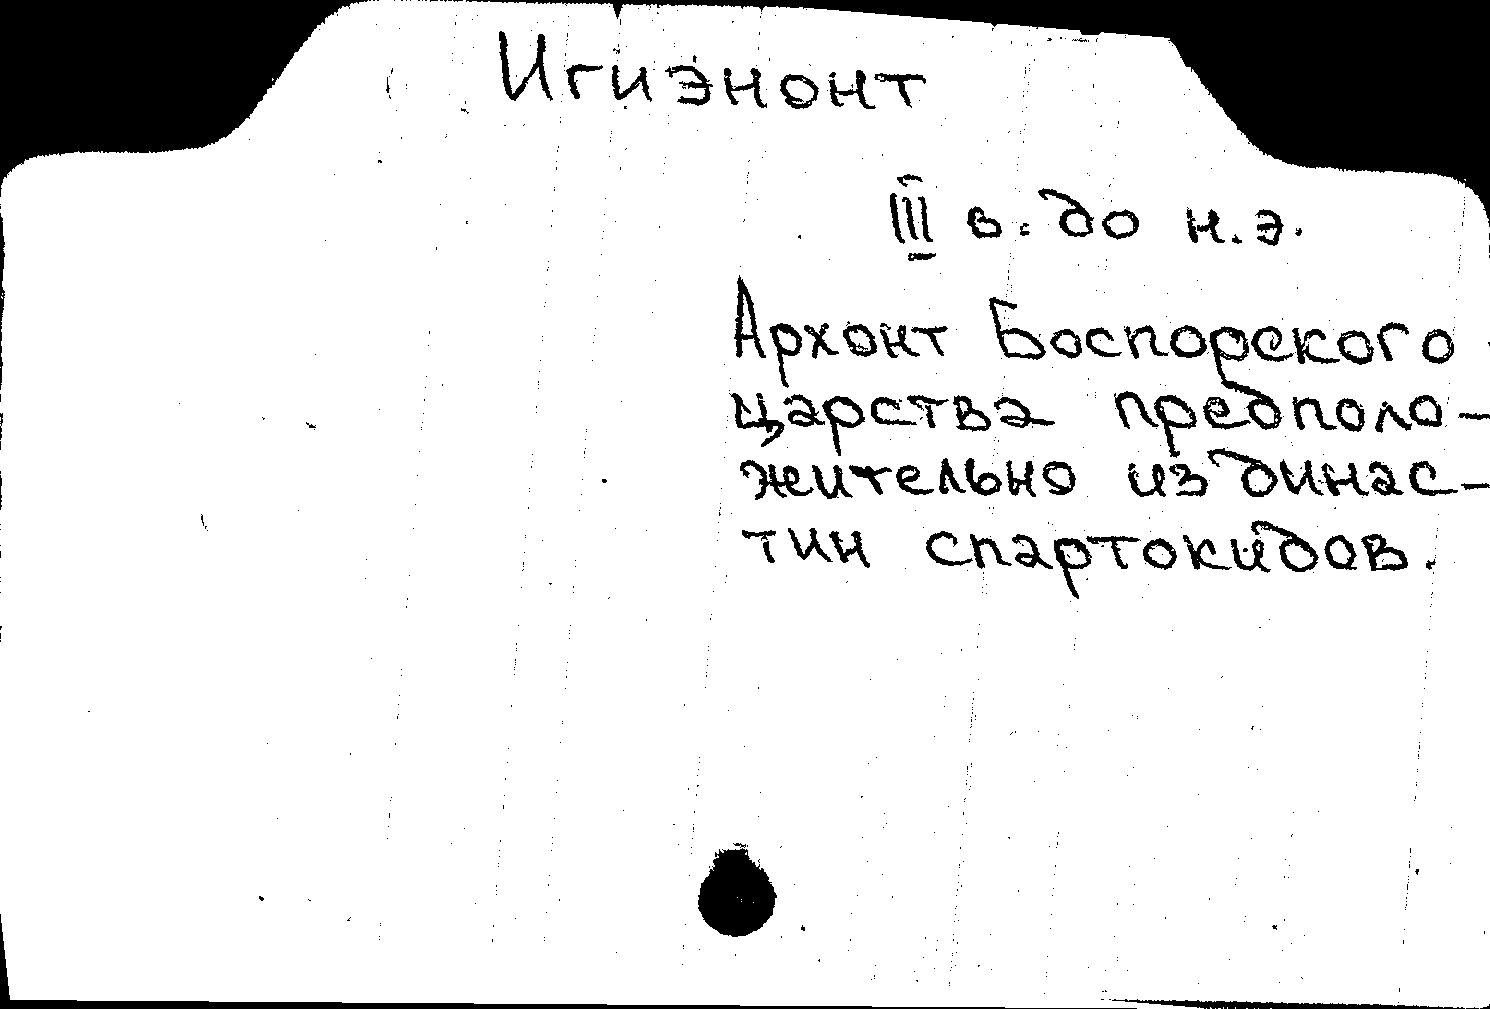 Игиэнонт
III в. до н.э.
Архонт Боспорского
царства предполо-
жительно из динас-
тин спартокидов.